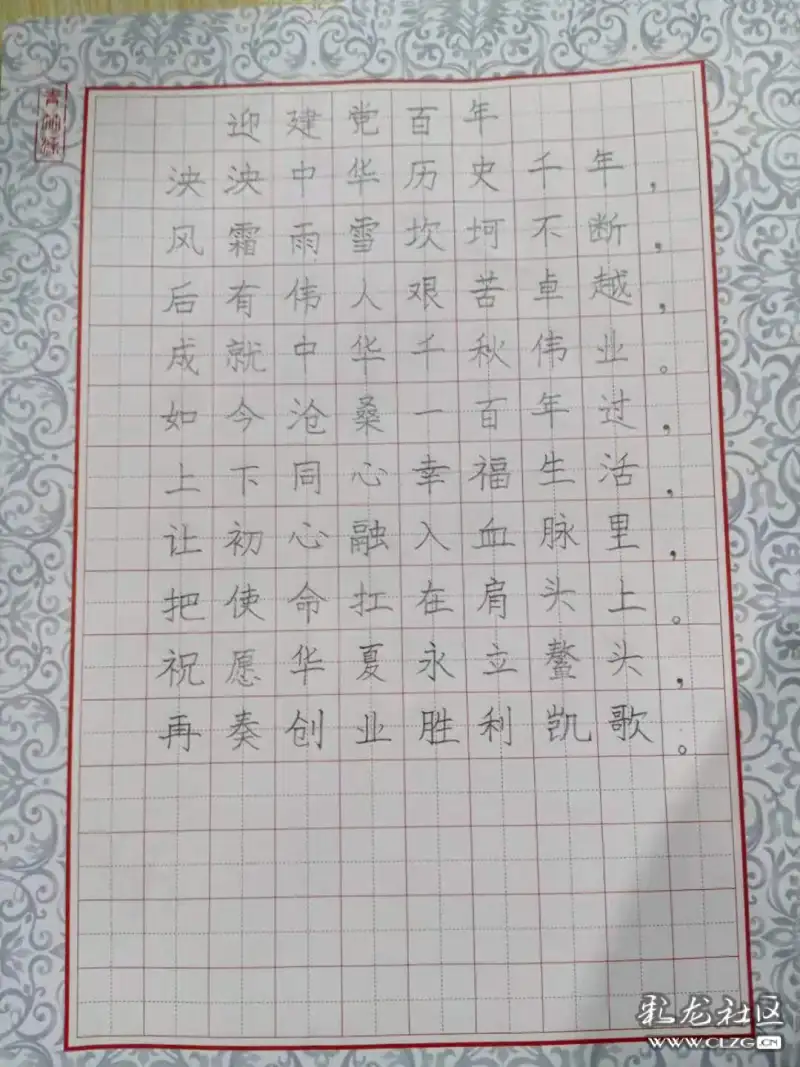 迎建党百年
泱泱中华历史千年，
风霜雨雪坎坷不断，
后有伟人艰苦卓越，
成就中华千秋伟业。
如今沧桑一百年过，
上下同心幸福生活，
让初心融入血脉里，
把使命扛在肩头上。
祝愿华夏永立鳌头，
再奏创业胜利凯歌。
彩龙社区
WWW.CLZG.CN